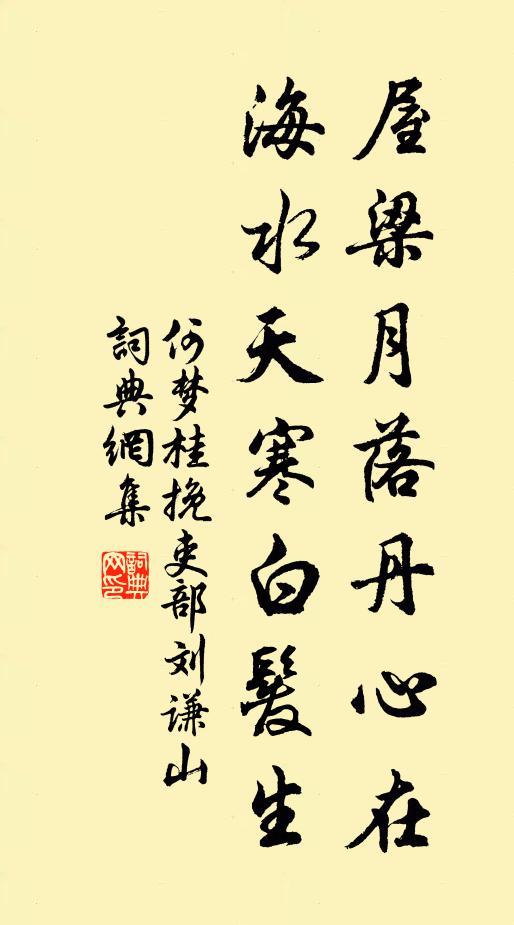 屋梁月落丹心在
海水天寒白髮生
何梦桂挽吏部刘谦山
詞典網集
詞典網印